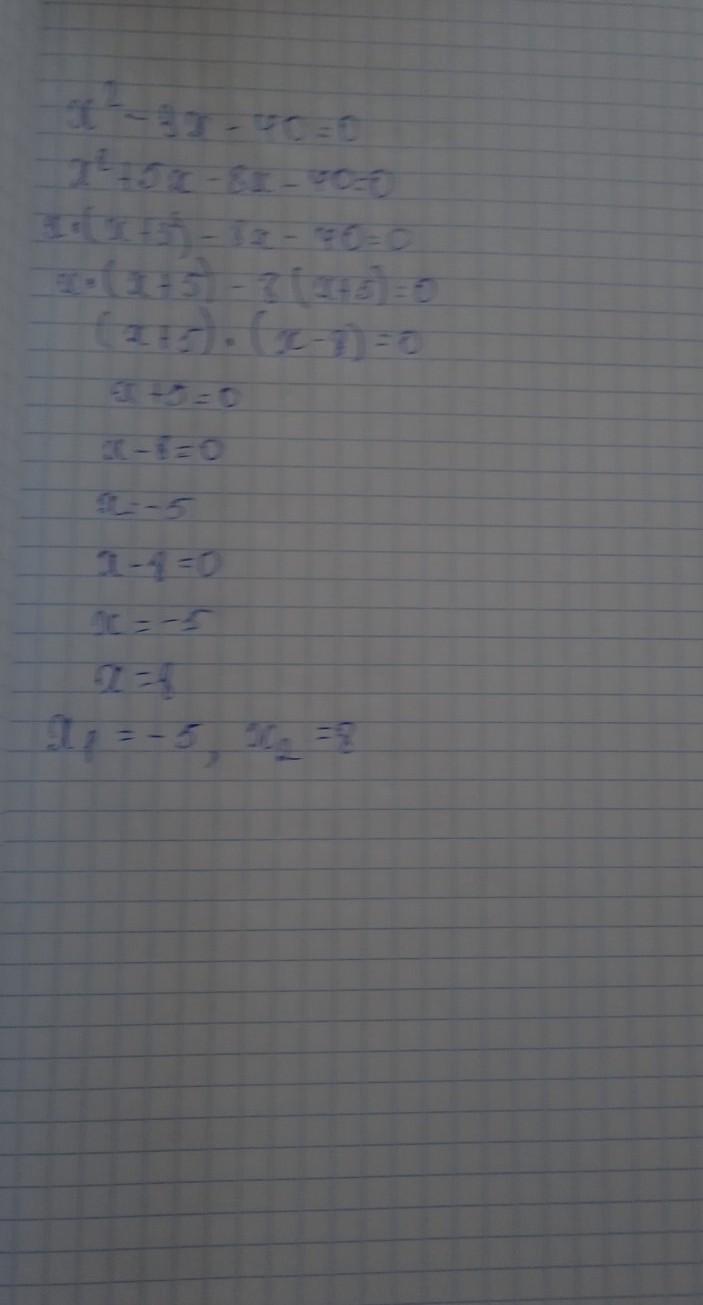 x² - 3x - 40 = 0
x² + 5x - 8x - 40 = 0
x · (x + 5) - 8x - 40 = 0
x · (x + 5) - 8 (x + 5) = 0
(x + 5) · (x - 8) = 0
x + 5 = 0
x - 8 = 0
x = -5
x - 8 = 0
x = -5
x = 8
x₁ = -5, x₂ = 8